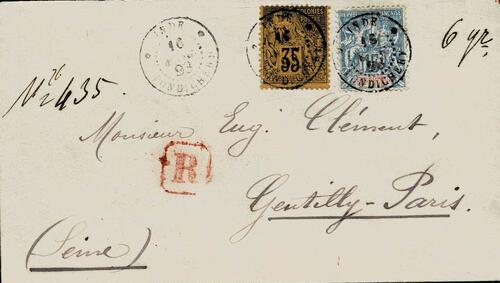 INDE
16
93
PONDICHERY
COLONIES
35
INDE
16
INDE
16
PONDICHERY
6 gr.
435.
Monsieur Eug. Clément,
R
Gentilly-Paris.
(Seine)